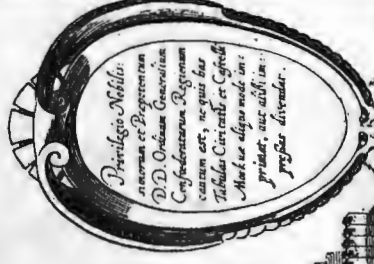 Privilegio Nobilis:
simorum et Prepotentum
D.D. Ordinum Generalium
Confœderatarum Regionum
cautum est, ne quis has
Tabulas Civitatis et Castrelli
aliquo modo im:
primat, aut alibi im:
pressas divendat.